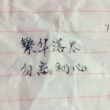 繁华落尽
勿忘初心